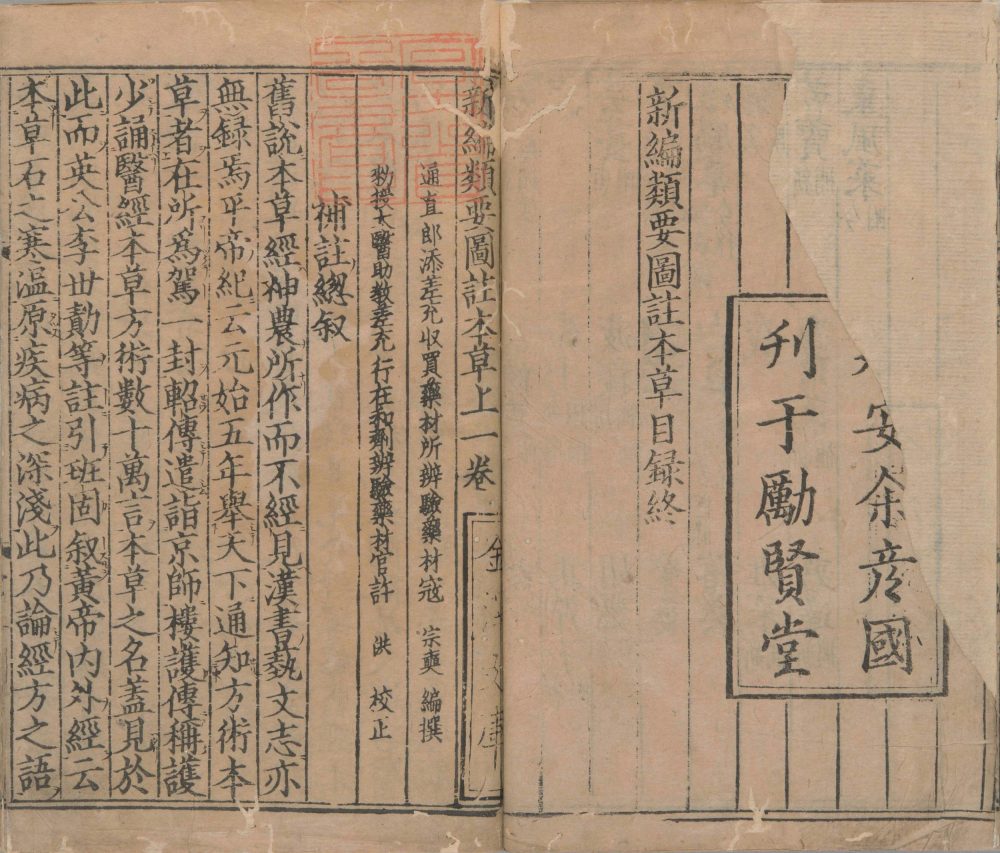 安余彦國
刊于勵賢堂
新編類要圖註本草目録終
新編類要圖註本草上一卷
通直郎添差充収買藥材所辨驗藥材寇 宗奭 編撰
勑授太醫助教差充行在和劑辨驗藥材官許 洪 校正
補註緫叙
舊說本草經神農所作而不經見漢書藝文志亦
無録焉平帝紀云元始五年舉天下通知方術本
草者在所爲駕一封軺傳遣詣京師樓護傳稱護
少誦醫經本草方術數十萬言本草之名盖見於
此而英公李世勣等註引班固叙黃帝内外經云
本草石之寒温原疾病之深淺此乃論經方之語